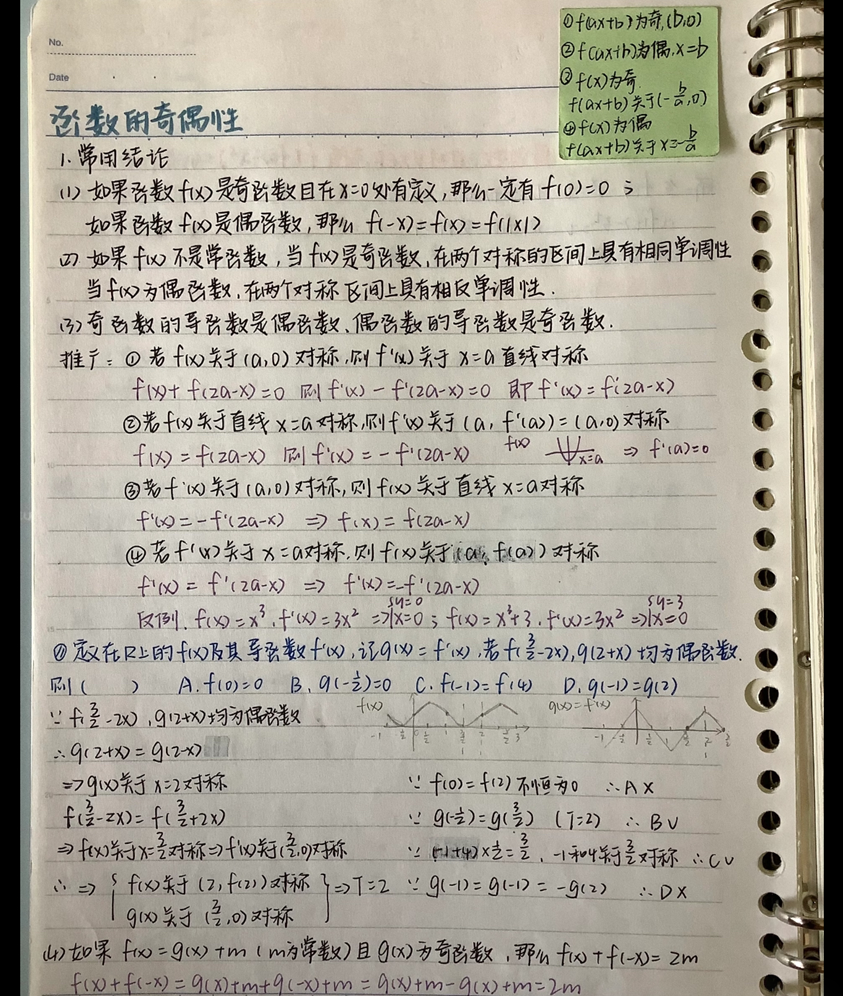 No.
Date
①f(ax+b)为奇,(b,0)
②f(ax+b)为偶,x=b
③f(x)为奇
f(ax+b)关于(-b/a,0)
④f(x)为偶
f(ax+b)关于x=-b/a
函数的奇偶性
1.常用结论
(1)如果函数f(x)是奇函数且在x=0处有定义,那么一定有f(0)=0;
如果函数f(x)是偶函数,那么 f(-x)=f(x)=f(|x|)
(2)如果f(x)不是常函数,当f(x)是奇函数,在两个对称的区间上具有相同单调性
当f(x)为偶函数,在两个对称区间上具有相反单调性.
(3)奇函数的导函数是偶函数、偶函数的导函数是奇函数.
推广:①若f(x)关于(a,0)对称,则f'(x)关于x=a直线对称
f(x)+f(2a-x)=0 则f'(x)-f'(2a-x)=0 即f'(x)=f'(2a-x)
②若f(x)关于直线x=a对称,则f'(x)关于(a,f'(a))=(a,0)对称
f(x)=f(2a-x) 则f'(x)=-f'(2a-x) f(x) x=a ⇒ f'(a)=0
③若f'(x)关于(a,0)对称,则f(x)关于直线x=a对称
f'(x)=-f'(2a-x) ⇒ f(x)=f(2a-x)
④若f'(x)关于x=a对称.则f(x)关于(a,f(a))对称
f'(x)=f'(2a-x) ⇒ f'(x)=-f'(2a-x)
反例.f(x)=x³.f'(x)=3x² ⇒{y=0 x=0;f(x)=x³+3.f'(x)=3x² ⇒{y=3 x=0
②定义在R上的f(x)及其导函数f'(x),记g(x)=f'(x),若f(3/2-2x),g(2+x)均为偶函数.
则( ) A.f(0)=0 B.g(-1/2)=0 C.f(-1)=f(4) D.g(-1)=g(2)
∵f(3/2-2x),g(2+x)均为偶函数 f(x) g(x)=f'(x)
∴g(2+x)=g(2-x)
⇒g(x)关于x=2对称 ∵f(0)=f(2)不恒为0 ∴A×
f(3/2-2x)=f(3/2+2x) ∵g(-1/2)=g(3/2) (T=2) ∴B√
⇒f(x)关于x=3/2对称⇒f'(x)关于(3/2,0)对称 ∵(-1+4)×1/2=3/2,-1和4关于3/2对称 ∴C√
∴⇒{f(x)关于(2,f(2))对称}⇒T=2 ∵g(-1)=g(-1)=-g(2) ∴D×
g(x)关于(3/2,0)对称
(4)如果 f(x)=g(x)+m(m为常数)且g(x)为奇函数,那么f(x)+f(-x)=2m
f(x)+f(-x)=g(x)+m+g(-x)+m=g(x)+m-g(x)+m=2m